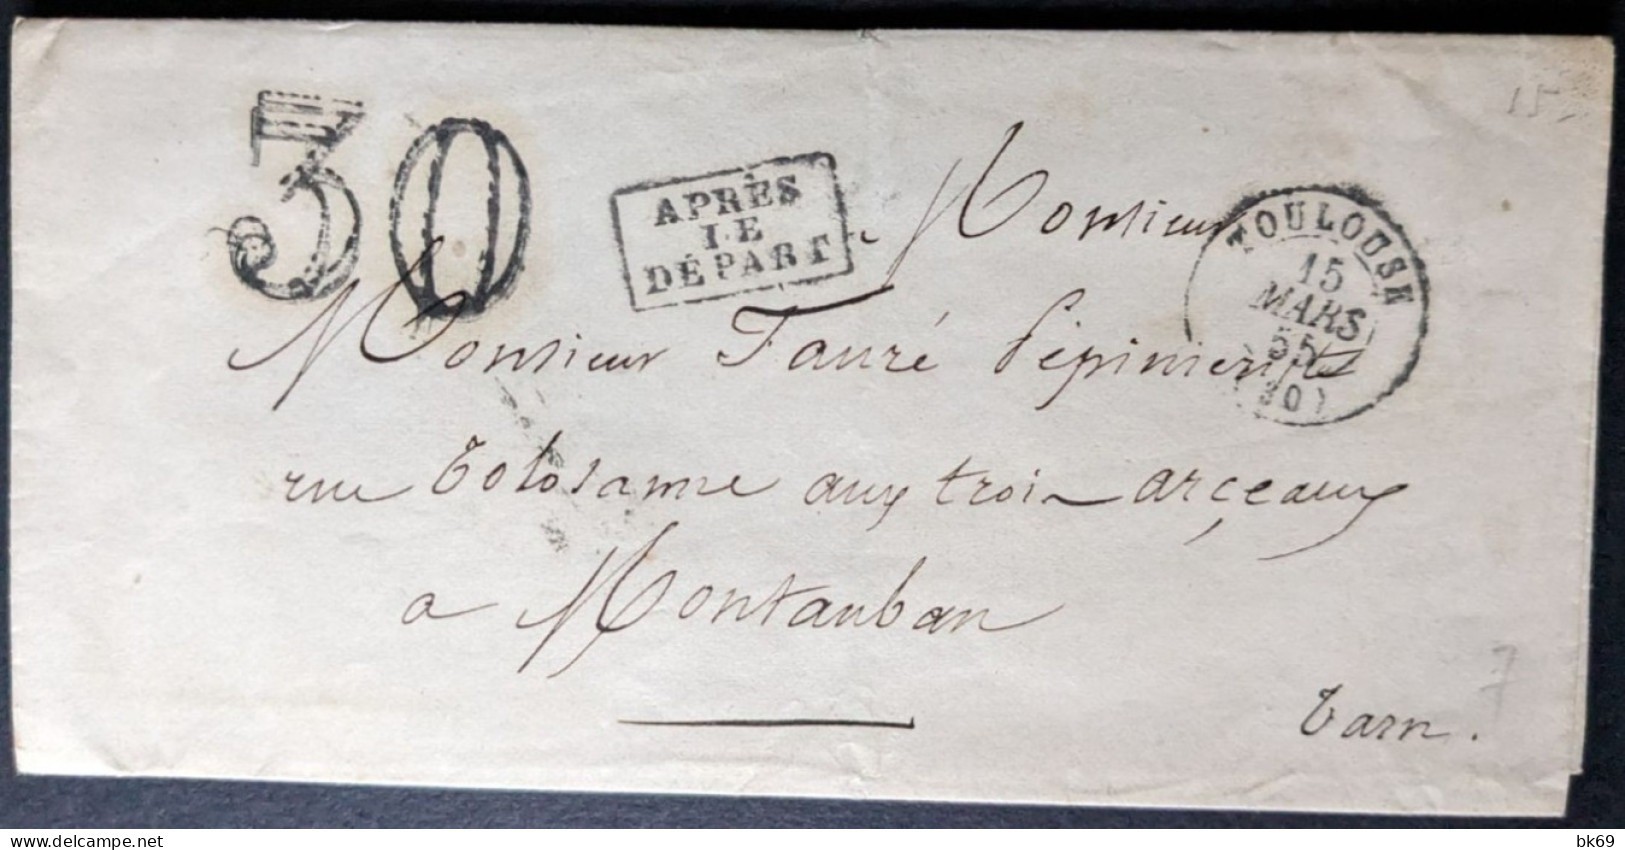 30
APRÈS
LE
DÉPART
TOULOUSE
15
MARS
55
(30)
Monsieur
Monsieur Fauré Pépinieriste
rue Tolosanne aux trois arçeaux
a Montauban
Tarn.
15
7
bk69